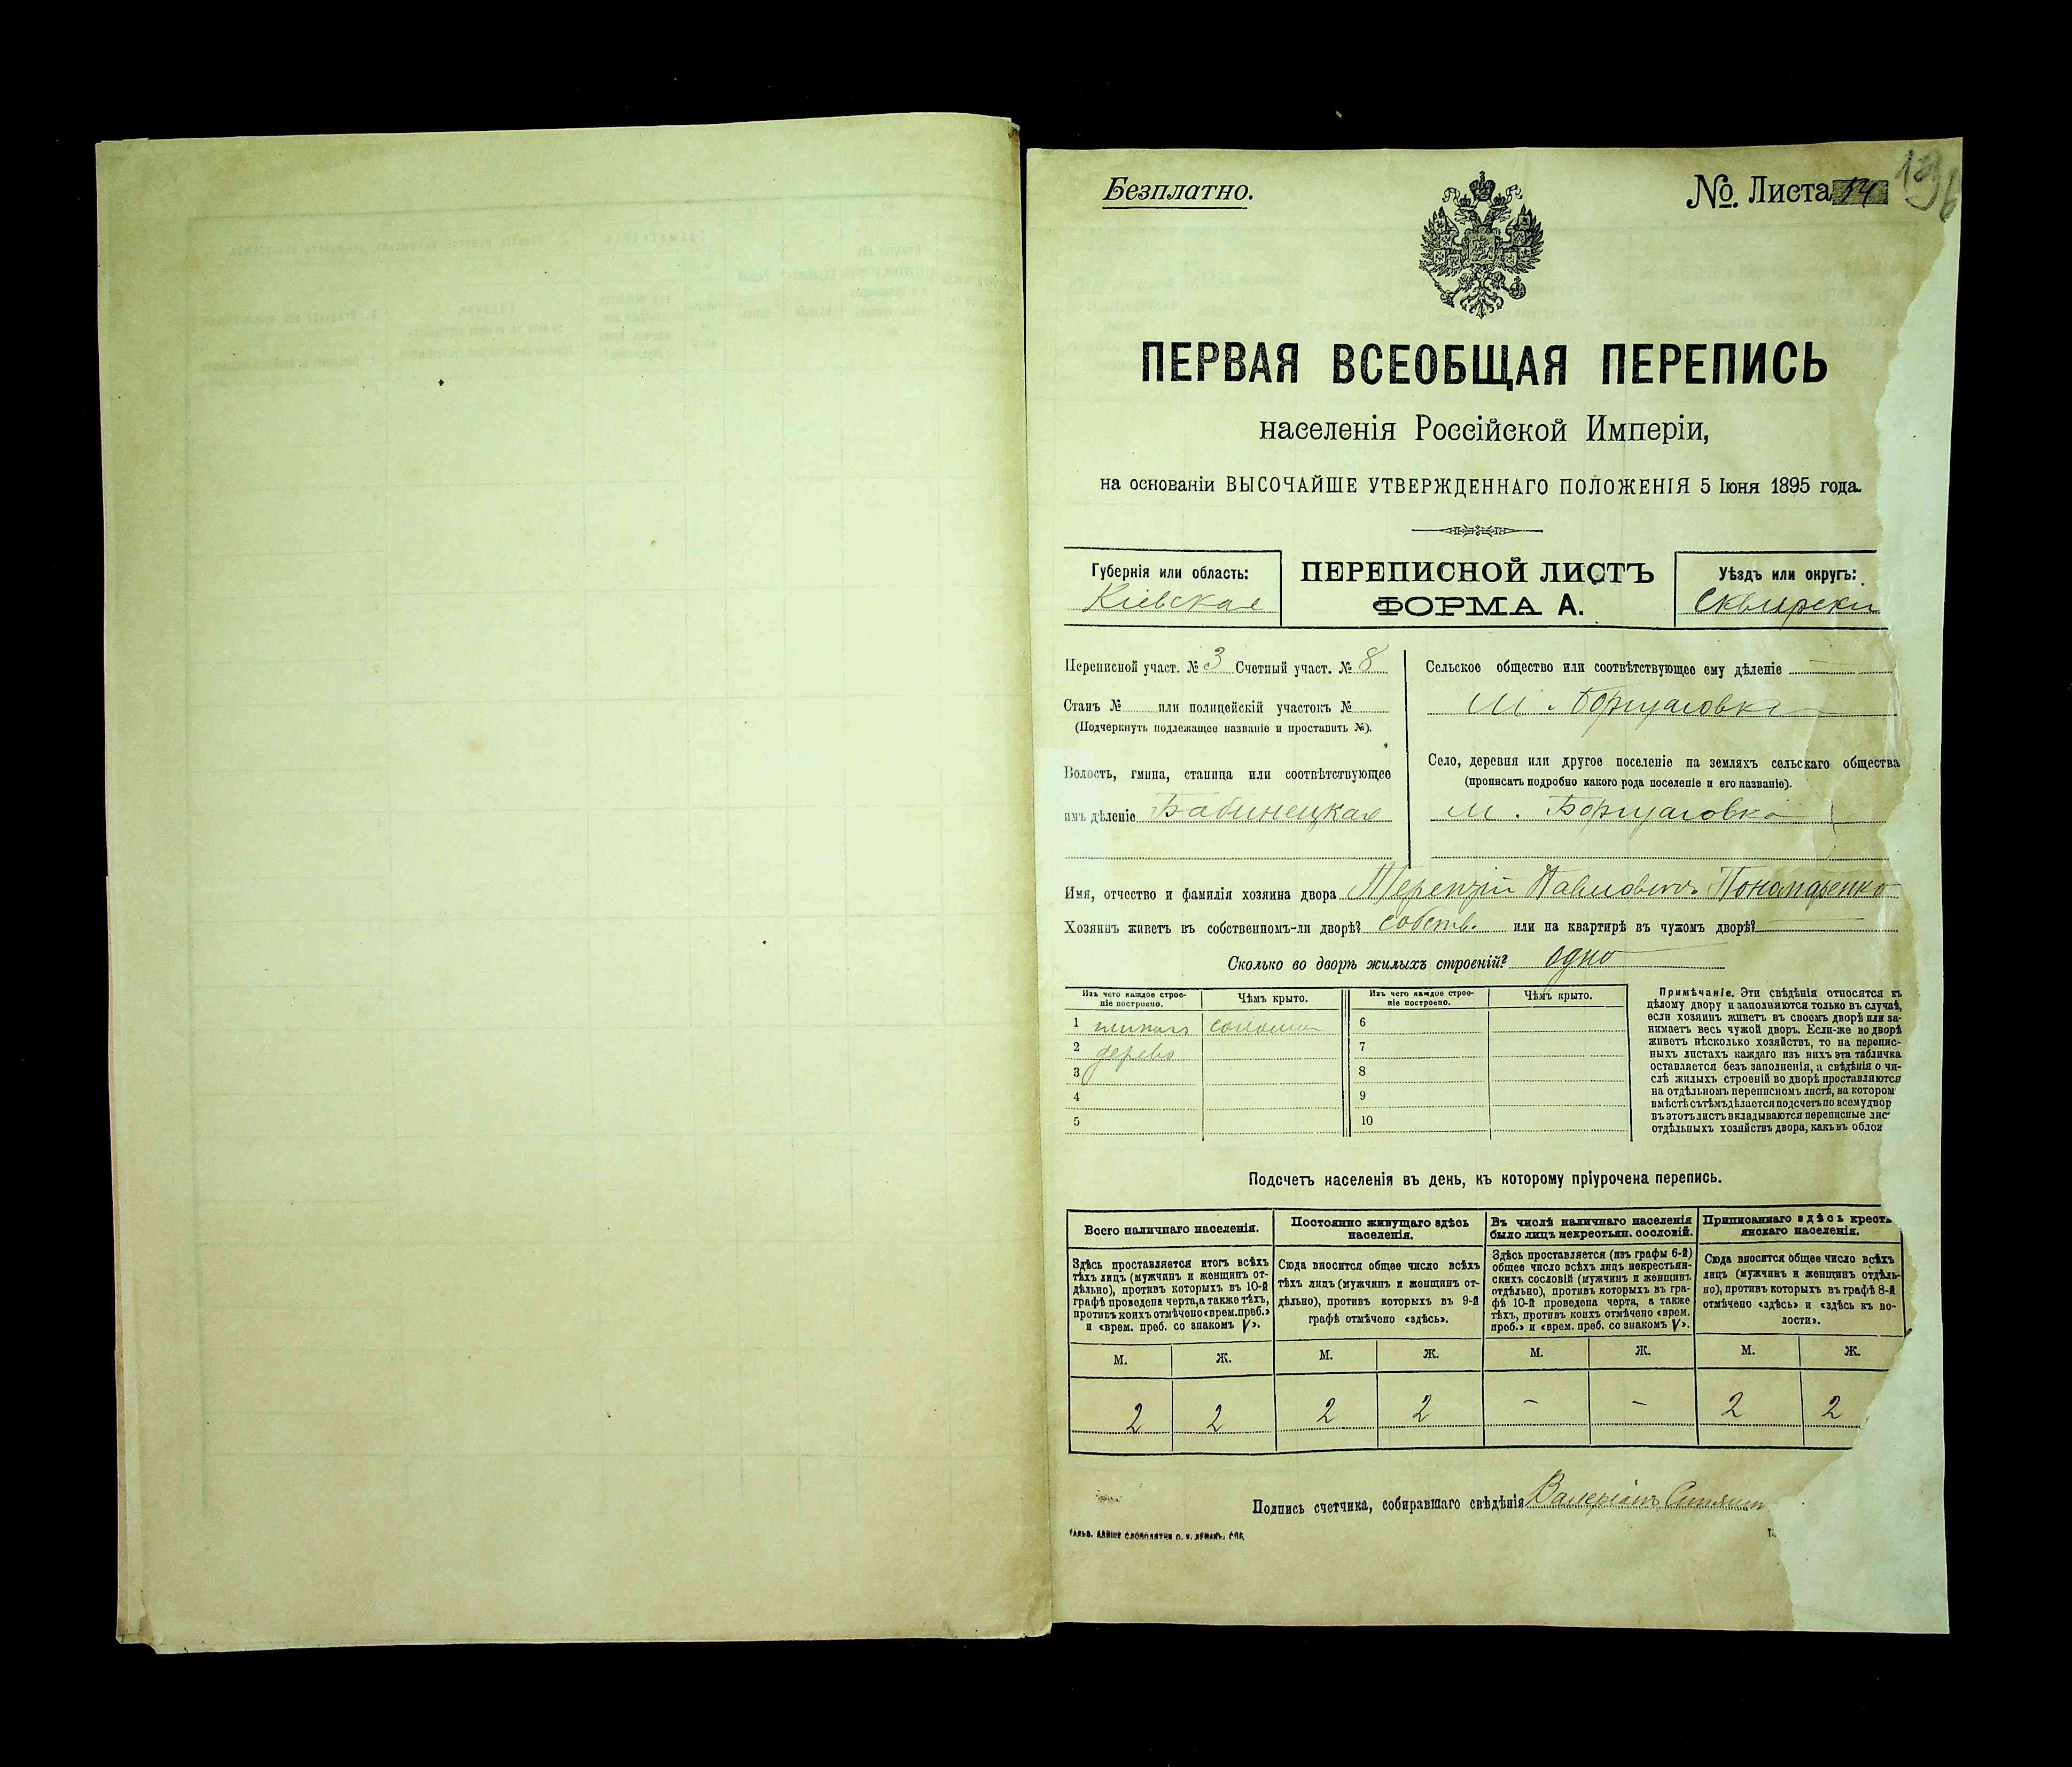 Безплатно.
№. Листа 54
196
ПЕРВАЯ ВСЕОБЩАЯ ПЕРЕПИСЬ
населенія Россійской Имперіи,
на основаніи ВЫСОЧАЙШЕ УТВЕРЖДЕННАГО ПОЛОЖЕНІЯ 5 Іюня 1895 года.
Губернія или область:
Кіевская
ПЕРЕПИСНОЙ ЛИСТЪ
ФОРМА А.
Уѣздъ или округъ:
Сквирски
Переписной участ. № 3 Счетный участ. № 8
Станъ № или полицейскій участокъ №
(Подчеркнуть подлежащее названіе и проставить №).
Волость, гмина, станица или соотвѣтствующее
имъ дѣленіе Бабинецкая
Сельское общество или соотвѣтствующее ему дѣленіе
м. Борщаговка
Село, деревня или другое поселеніе на земляхъ сельскаго общества
(прописать подробно какого рода поселеніе и его названіе).
м. Борщаговка
Имя, отчество и фамилія хозяина двора Терентій Павловичъ Пономаренко
Хозяинъ живетъ въ собственномъ-ли дворѣ? собств. или на квартирѣ въ чужомъ дворѣ?
Сколько во дворѣ жилыхъ строеній? одно
Изъ чего каждое строе-
ніе построено.
Чѣмъ крыто.
Изъ чего каждое строе-
ніе построено.
Чѣмъ крыто.
1 солома 6
2 дерево 7
3 8
4 9
5 10
Примѣчаніе. Эти свѣдѣнія относятся къ
цѣлому двору и заполняются только въ случаѣ,
если хозяинъ живетъ въ своемъ дворѣ или за-
нимаетъ весь чужой дворъ. Если-же во дворѣ
живетъ нѣсколько хозяйствъ, то на перепис-
ныхъ листахъ каждаго изъ нихъ эта табличка
оставляется безъ заполненія, а свѣдѣнія о чи-
слѣ жилыхъ строеній во дворѣ проставляются
на отдѣльномъ переписномъ листѣ, на котором
вмѣстѣ съ тѣмъ дѣлается подсчетъ по всему двор
въ этотъ листъ вкладываются переписные лис
отдѣльныхъ хозяйствъ двора, какъ въ облож
Подсчетъ населенія въ день, къ которому пріурочена перепись.
Всего наличнаго населенія.
Постоянно живущаго здѣсь
населенія.
Въ числѣ наличнаго населенія
было лицъ некрестьян. сословій.
Приписаннаго здѣсь крест
янскаго населенія.
Здѣсь проставляется итогъ всѣхъ
тѣхъ лицъ (мужчинъ и женщинъ от-
дѣльно), противъ которыхъ въ 10-й
графѣ проведена черта, а также тѣхъ,
противъ коихъ отмѣчено «врем. преб.»
и «врем. преб. со знакомъ V».
Сюда вносится общее число всѣхъ
тѣхъ лицъ (мужчинъ и женщинъ от-
дѣльно), противъ которыхъ въ 9-й
графѣ отмѣчено «здѣсь».
Здѣсь проставляется (изъ графы 6-й)
общее число всѣхъ лицъ некрестьян-
скихъ сословій (мужчинъ и женщинъ
отдѣльно), противъ которыхъ въ гра-
фѣ 10-й проведена черта, а также
тѣхъ, противъ коихъ отмѣчено «врем.
преб.» и «врем. преб. со знакомъ V».
Сюда вносится общее число всѣхъ
лицъ (мужчинъ и женщинъ отдѣль-
но), противъ которыхъ въ графѣ 8-й
отмѣчено «здѣсь» и «здѣсь къ во-
лости».
М. Ж. М. Ж. М. Ж. М. Ж.
2 2 2 2 – – 2 2
Подпись счетчика, собиравшаго свѣдѣнія Валеріанъ